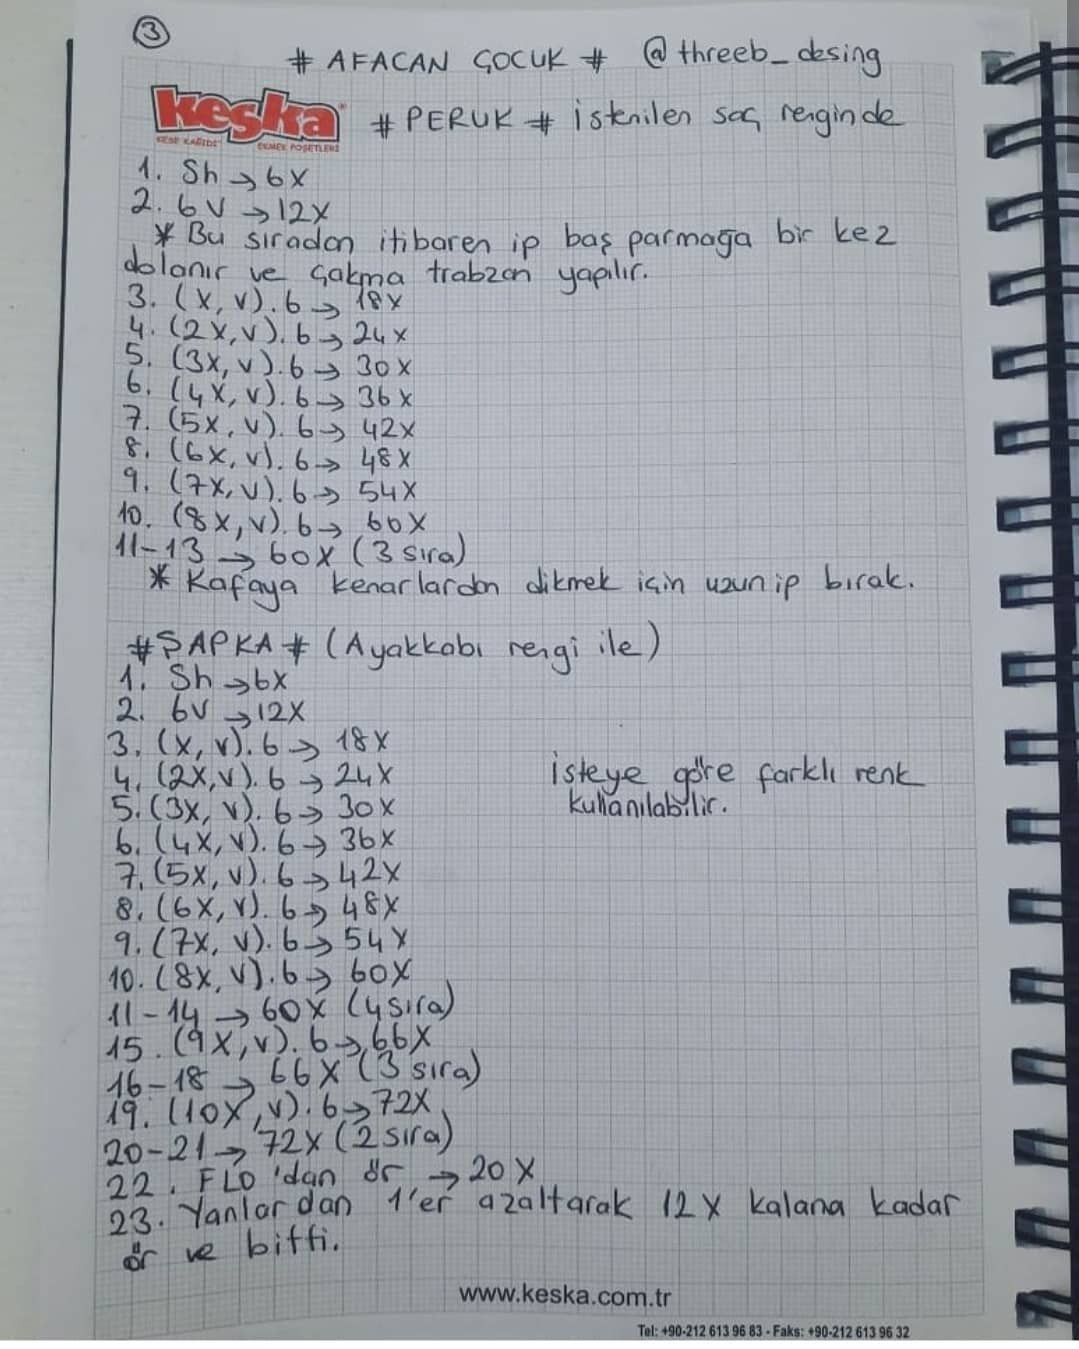 3
# AFACAN ÇOCUK # @threeb_desing
keska
KESE KAĞIDI EKMEK POŞETLERİ
# PERUK # istenilen saç renginde
1. Sh → 6X
2. 6V → 12X
* Bu sıradan itibaren ip baş parmağa bir kez
dolanır ve çakma trabzan yapılır.
3. (X, V). 6 → 18X
4. (2X, V). 6 → 24X
5. (3X, V). 6 → 30X
6. (4X, V). 6 → 36X
7. (5X, V). 6 → 42X
8. (6X, V). 6 → 48X
9. (7X, V). 6 → 54X
10. (8X, V). 6 → 60X
11-13 → 60X (3 sıra)
* Kafaya kenarlardan dikmek için uzun ip bırak.
# ŞAPKA # (Ayakkabı rengi ile)
1. Sh → 6X
2. 6V → 12X
3. (X, V). 6 → 18X
4. (2X, V). 6 → 24X
5. (3X, V). 6 → 30X
6. (4X, V). 6 → 36X
7. (5X, V). 6 → 42X
8. (6X, V). 6 → 48X
9. (7X, V). 6 → 54X
10. (8X, V). 6 → 60X
11-14 → 60X (4 sıra)
15. (9X, V). 6 → 66X
16-18 → 66X (3 sıra)
19. (10X, V). 6 → 72X
20-21 → 72X (2 sıra)
22. FLO'dan ör → 20X
23. Yanlardan 1'er azaltarak 12X kalana kadar
ör ve bitti.
isteye göre farklı renk
kullanılabilir.
www.keska.com.tr
Tel: +90-212 613 96 83 - Faks: +90-212 613 96 32